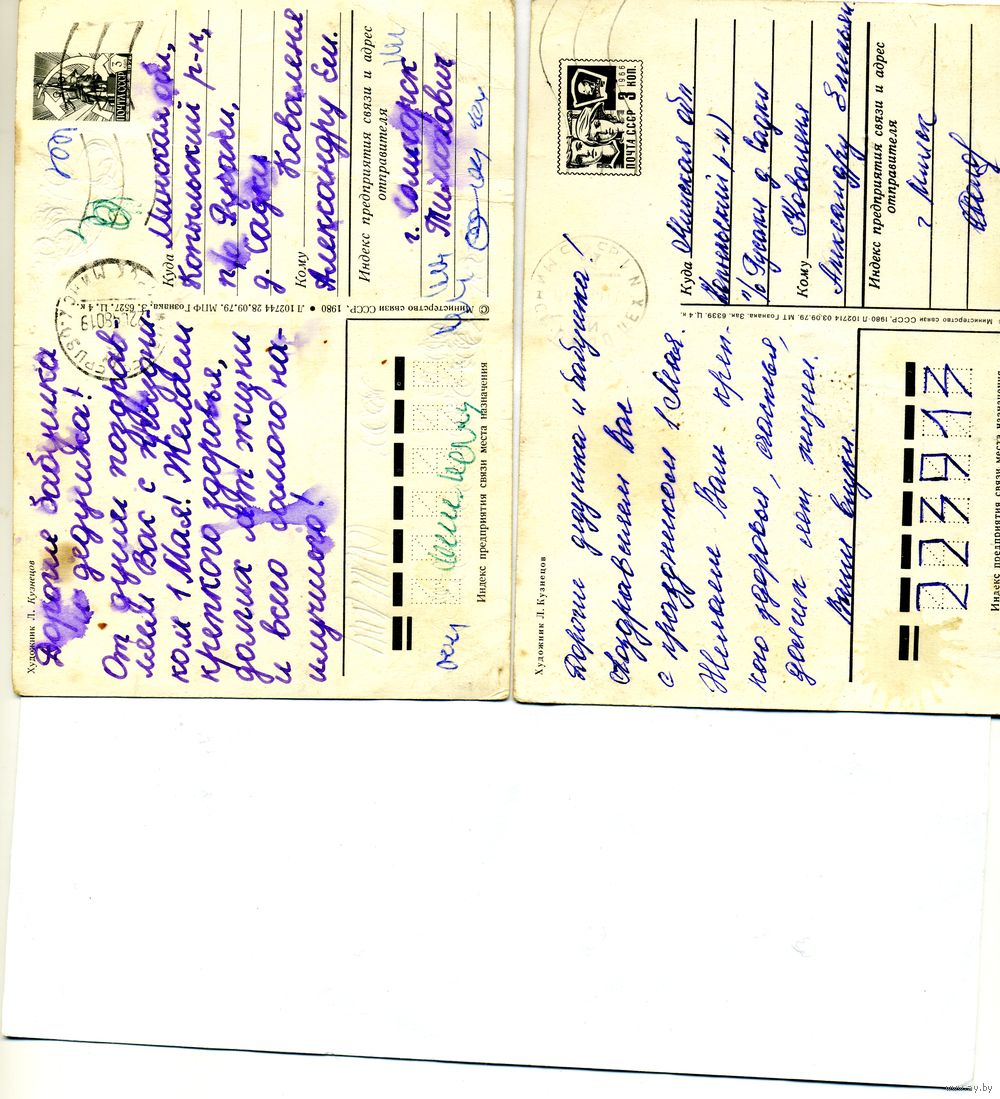 Художник Л. Кузнецов
Дорогие бабушка
и дедушка!
От души поздрав
ляем Вас с
ком 1 Мая! Желаем
крепкого здоровья,
долгих лет жизни
и всего самого на-
илучшего!
ПОЧТА СССР 3
Куда Минская обл,
Копыльский р-н,
п/о
д. Садки
Кому Коваленя
Александру Ем.
Индекс предприятия связи и адрес
отправителя
г. Солигорск
© Министерство связи СССР, 1980 • Л 102744 28.09.79. МПФ Гознака, З. 6527. Ц. 4 к.
Индекс предприятия связи места назначения
Художник Л. Кузнецов
Дорогие дедушка и бабушка!
Поздравляем Вас
с праздником 1 Мая.
Желаем Вам креп-
кого здоровья, счастья,
долгих лет жизни.
Ваши внуки.
1966
ПОЧТА СССР 3 КОП.
Куда Минская обл
Копыльский р-н
п/о Русаки д. Садки
Кому Коваленя
Александру Емельян.
Индекс предприятия связи и адрес
отправителя
г Минск
Министерство связи СССР, 1980 Л 102714 03.09.79. МТ Гознака. Зак. 6339. Ц. 4 к.
223913
Индекс предприятия связи места назначения
www.ay.by